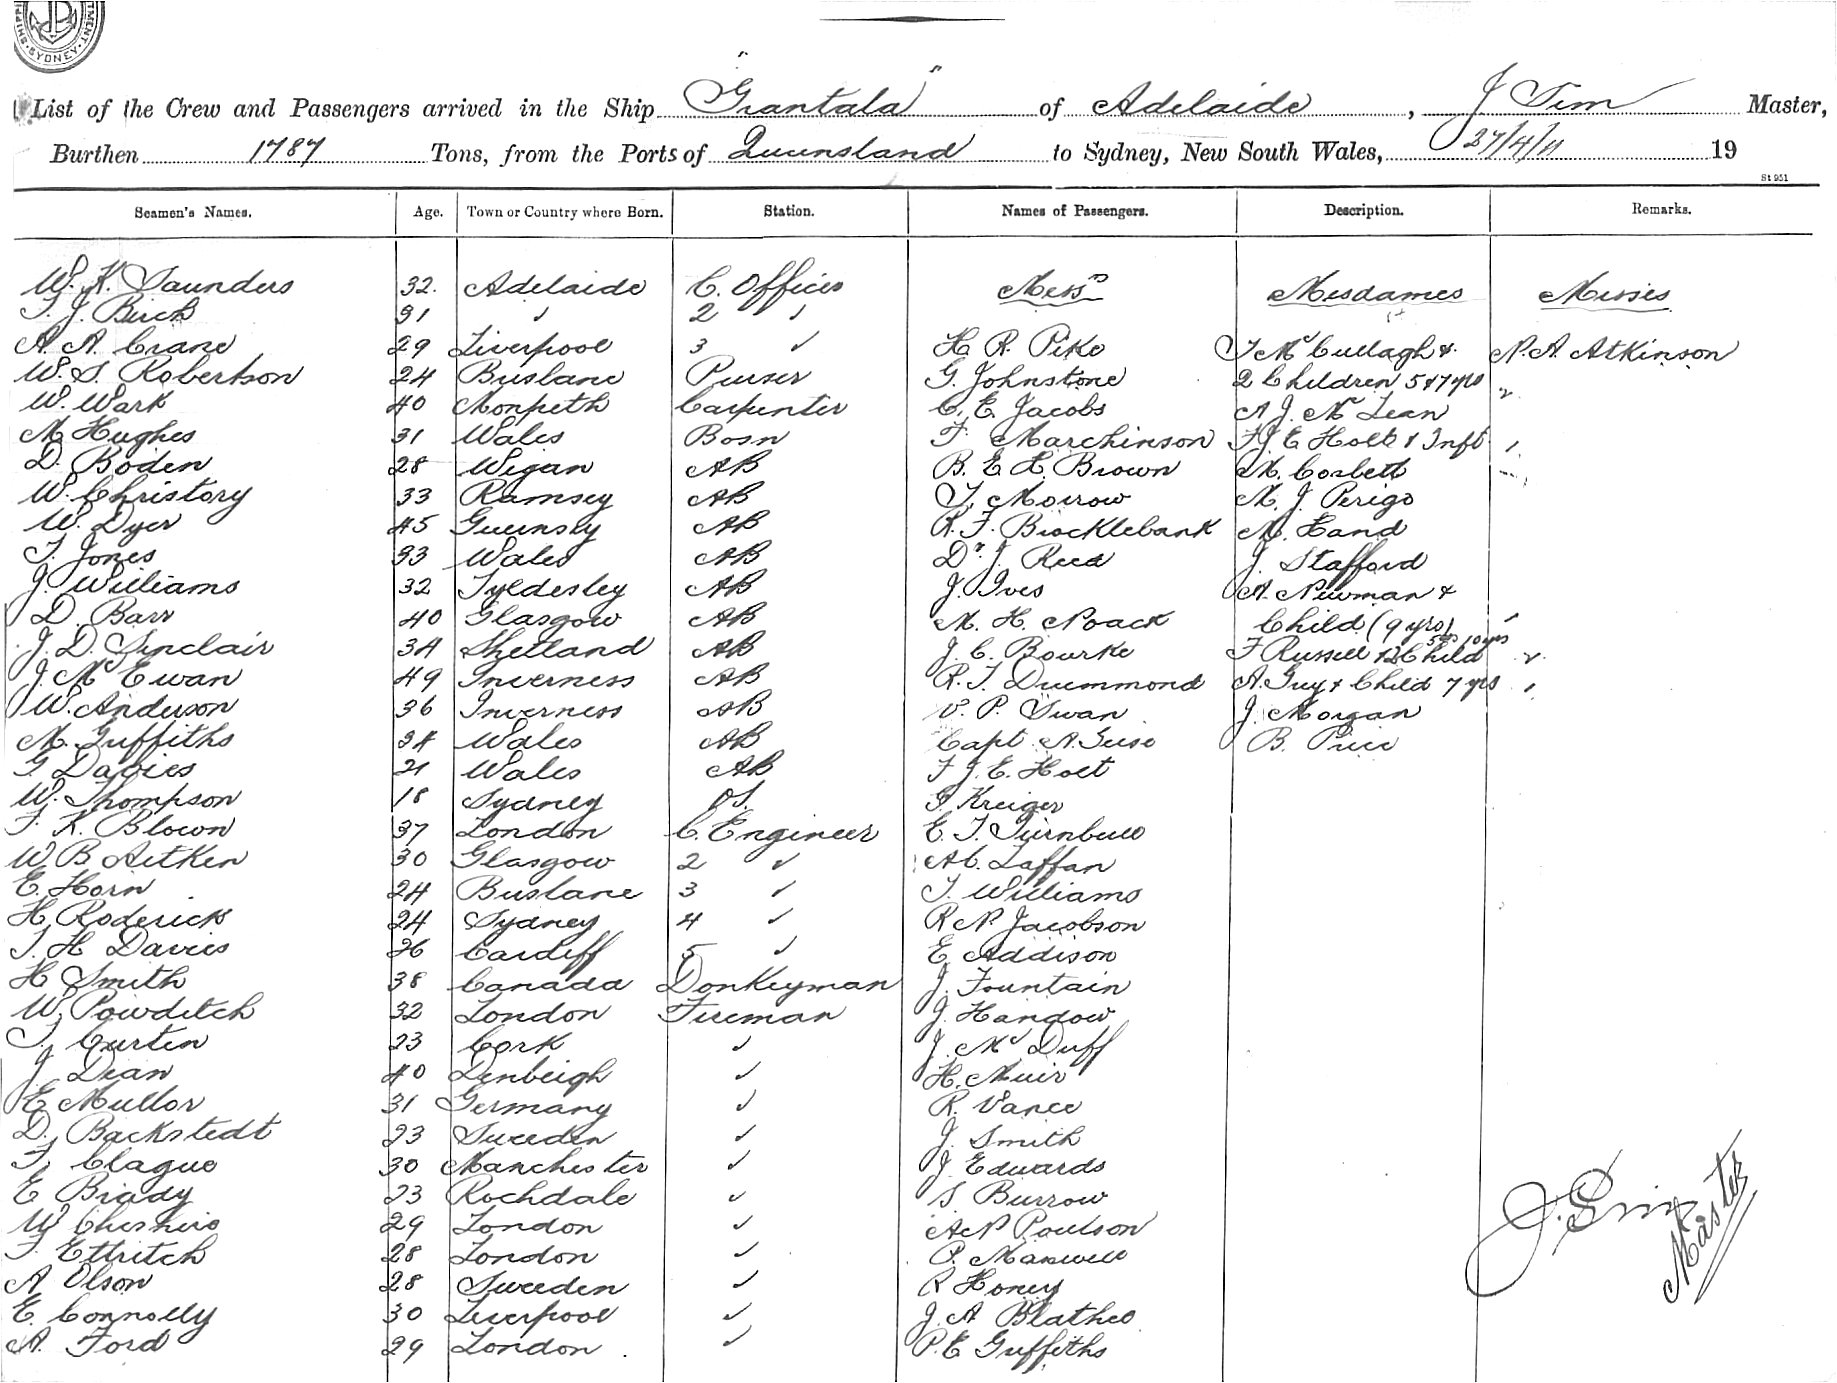 SYDNEY
List of the Crew and Passengers arrived in the Ship "Grantala" of Adelaide, J Sim Master,
Burthen 1787 Tons, from the Ports of Queensland to Sydney, New South Wales, 27/4/11 19
St 951
Seamen's Names. Age. Town or Country where Born. Station. Names of Passengers. Description. Remarks.
W. K. Saunders 32. Adelaide C. Officer Messrs Mesdames Misses
T. J. Birch 31 " 2 "
A. A. Crane 29 Liverpool 3 " H R. Pike J McCullagh & N. A. Atkinson
W. S. Robertson 24 Brisbane Purser G. Johnstone 2 Children 5 & 7 yrs
W. Wark 40 Monpeth Carpenter C. E. Jacobs A J. McLean
M Hughes 31 Wales Bosn F. Marchinson F J. E Holt & Inft
D. Boden 28 Wigan AB B. E. H. Brown M. Corbett
W. Christory 33 Ramsey AB T. Morrow M. J. Perigo
W. Dyer 45 Guernsey AB R. F. Brocklebank M. Hand
T. Jones 33 Wales AB Dr. J. Reed J. Stafford
J. Williams 32 Tyldesley AB J. Ives A. Newman &
D. Barr 40 Glasgow AB M. H. Noack Child (9 yrs)
J. D. Sinclair 34 Shetland AB J. C. Bourke F Russell & 2 Child 5 yrs 10 yrs
J. McEwan 49 Inverness AB R. T. Drummond A. Guy & Child 7 yrs
W. Anderson 36 Inverness AB V. P. Swan J. Morgan
M. Griffiths 34 Wales AB Capt. A. B. Price
G Davies 21 Wales AB F J. E. Holt
W. Thompson 18 Sydney OS. Kreiger
F. K. Blown 37 London C. Engineer E. T. Turnbull
W B Aitken 30 Glasgow 2 " A C. Laffan
E. Horn 24 Brisbane 3 " T. Williams
H Roderick 24 Sydney 4 " R N. Jacobson
T. H Davies 26 Cardiff 5 " E Addison
H Smith 38 Canada Donkeyman J. Fountain
W. Powditch 32 London Fireman J. Handow
T. Curtin 23 Cork " J. McDuff
J Dean 40 Denbeigh " H. Muir
E Mullor 31 Germany " R. Vance
D. Backstedt 23 Sweeden " J. Smith
T. Clague 30 Manchester " J Edwards
E Brady 23 Rochdale " S Burrow
W Cheshire 29 London " A N Poulson
T. Ettritch 28 London " P. Maxwell
A Olson 28 Sweeden " R Honey
E. Connolly 30 Liverpool " J. A Blathe
A. Ford 29 London " P. E Griffiths
J. Sim
Master